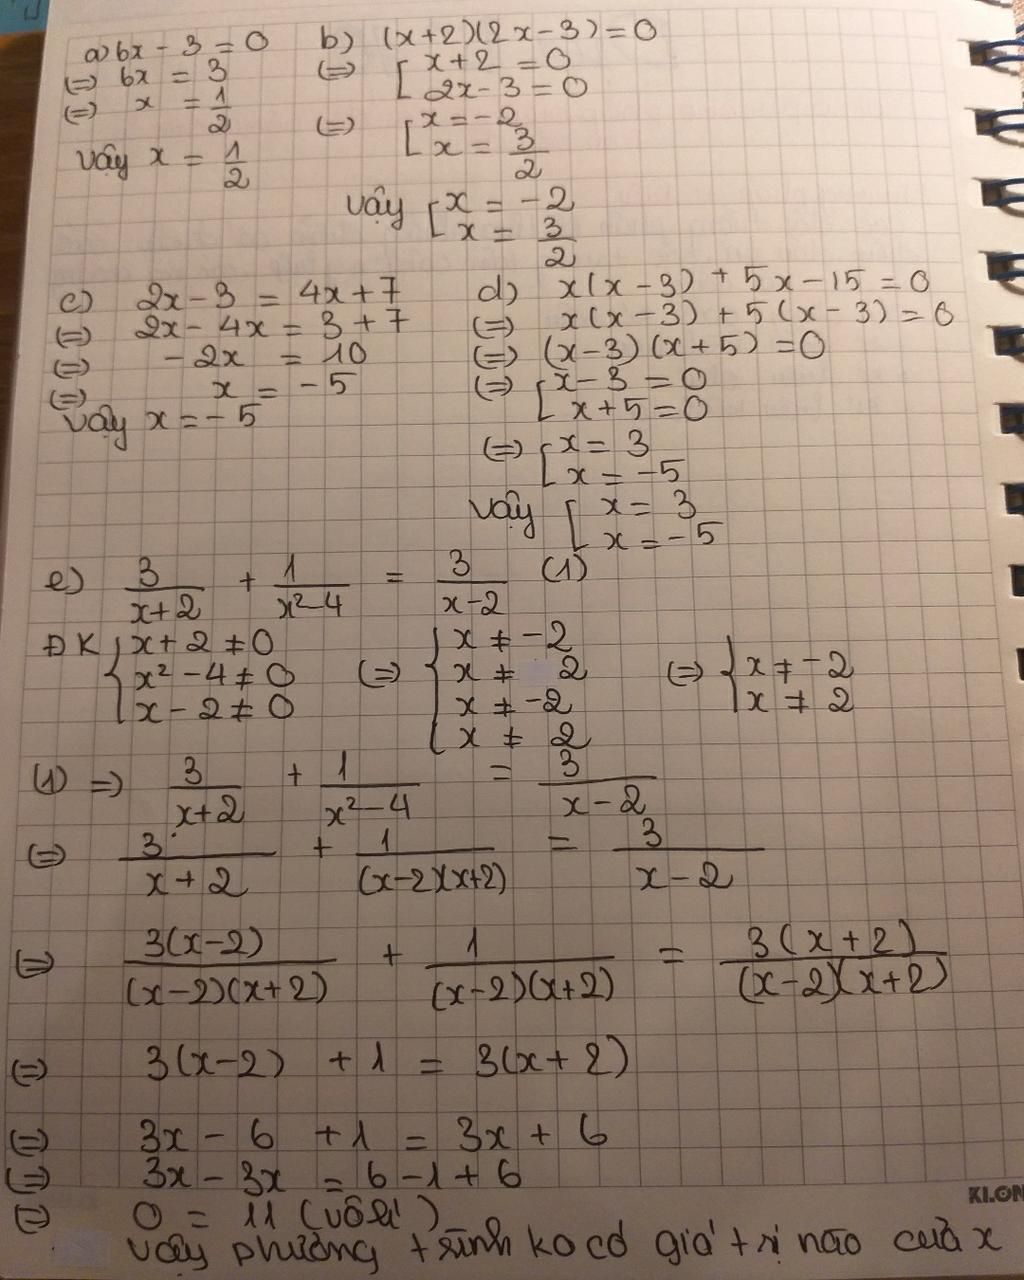 a) 6x - 3 = 0
(=) 6x = 3
(=) x = 1/2
Vậy x = 1/2
b) (x+2)(2x-3) = 0
(=) [ x+2 = 0
2x-3 = 0
(=) [ x = -2
x = 3/2
Vậy [ x = -2
x = 3/2
c) 2x-3 = 4x+7
(=) 2x-4x = 3+7
(=) -2x = 10
(=) x = -5
Vậy x = -5
d) x(x-3) + 5x-15 = 0
(=) x(x-3) + 5(x-3) = 0
(=) (x-3)(x+5) = 0
(=) [ x-3 = 0
x+5 = 0
(=) [ x = 3
x = -5
Vậy [ x = 3
x = -5
e) 3/(x+2) + 1/(x²-4) = 3/(x-2) (1)
ĐK { x+2 ≠ 0 (=) { x ≠ -2 (=) { x ≠ -2
x²-4 ≠ 0 x ≠ 2 x ≠ 2
x-2 ≠ 0 x ≠ -2
x ≠ 2
(1) => 3/(x+2) + 1/(x²-4) = 3/(x-2)
(=) 3/(x+2) + 1/((x-2)(x+2)) = 3/(x-2)
(=) 3(x-2)/((x-2)(x+2)) + 1/((x-2)(x+2)) = 3(x+2)/((x-2)(x+2))
(=) 3(x-2) + 1 = 3(x+2)
(=) 3x - 6 + 1 = 3x + 6
(=) 3x - 3x = 6-1+6
(=) 0 = 11 (vô lí)
Vậy phương trình ko có giá trị nào của x
KLON